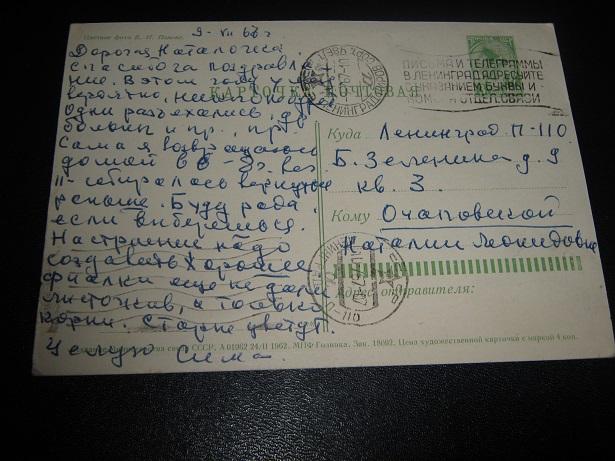 Цветное фото Е. И.
9-VII 67 г
Дорогая Наталочка.
Спасибо за поздравле
ние. В этом году у
вероятно, никого не будет
Одни разъехались, др.
больны и пр., пр.
Сама я возвращаюсь
домой в
II-
раньше. Буду рада,
если выберешься.
Настроение надо
создавать хорошее
фиалки еще не дали
листочков, а только
корни. Старые цветут
Целую Сима.
КАРТОЧКА ПОЧТОВАЯ
ПИСЬМА И ТЕЛЕГРАММЫ
В ЛЕНИНГРАД АДРЕСУЙТЕ
С УКАЗАНИЕМ БУКВЫ И
НОМЕРА ОТДЕЛ. СВЯЗИ
Куда Ленинград П-110
Б. Зеленина д. 9
кв. 3.
Кому Очаповской
Наталии Леонидовне
Адрес отправителя:
Министерства связи СССР, А 01962 24/II 1962. МПФ Гознака. Зак. 18092. Цена художественной карточки с маркой 4 коп.